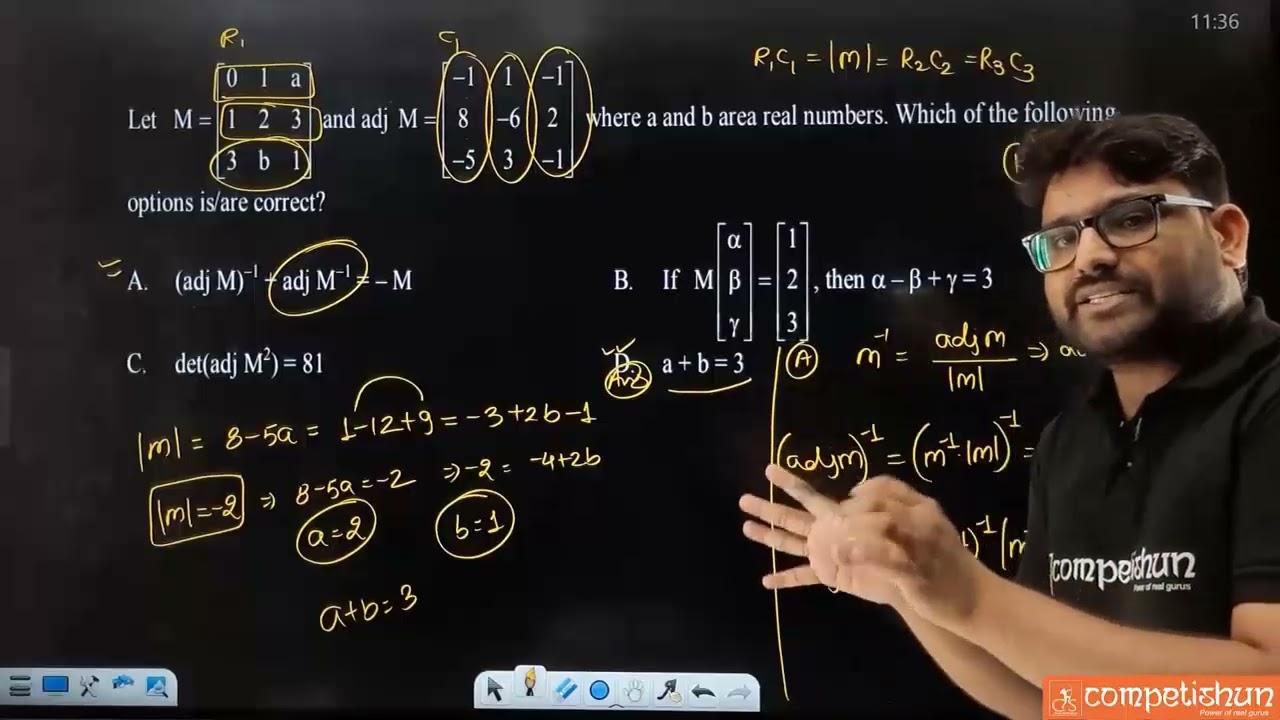 11:36
R₁ C₁ R₁C₁ = |m| = R₂C₂ = R₃C₃
Let M = [0 1 a; 1 2 3; 3 b 1] and adj M = [–1 1 –1; 8 –6 2; –5 3 –1] where a and b area real numbers. Which of the following
options is/are correct?
A. (adj M)⁻¹ + adj M⁻¹ = – M
B. If M [α; β; γ] = [1; 2; 3], then α – β + γ = 3
C. det(adj M²) = 81
D. a + b = 3
Ans
|m| = 8-5a = 1-12+9 = -3+2b-1
|m|=-2 ⇒ 8-5a=-2 ⇒ -2 = -4+2b
a=2 b=1
a+b=3
A m⁻¹ = adj m / |m| ⇒
(adj m)⁻¹ = (m⁻¹·|m|)⁻¹ =
competishun
Power of real gurus
competishun
Power of real gurus